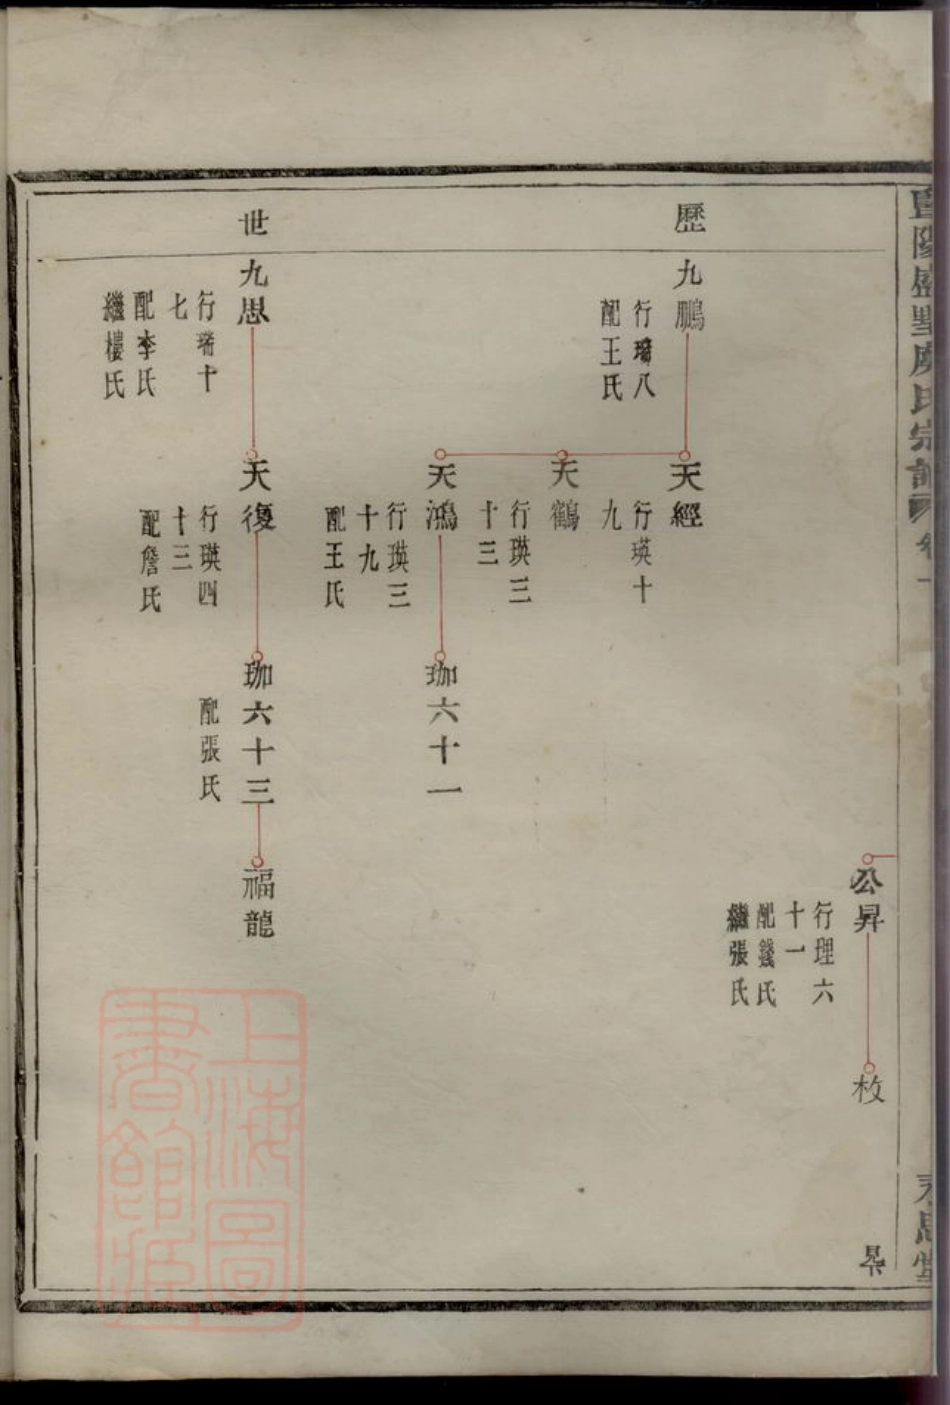 公昇
行理六
十一
配錢氏
繼張氏
枚
歷
九鵬
行璠八
配王氏
天經
行瑛十
九
天鶴
行瑛三
十三
天鴻
行瑛三
十九
配王氏
珈六十一
世
九思
行璠十
七
配李氏
繼樓氏
天復
行瑛四
十三
配詹氏
珈六十三
配張氏
福龍
上海圖
書館藏